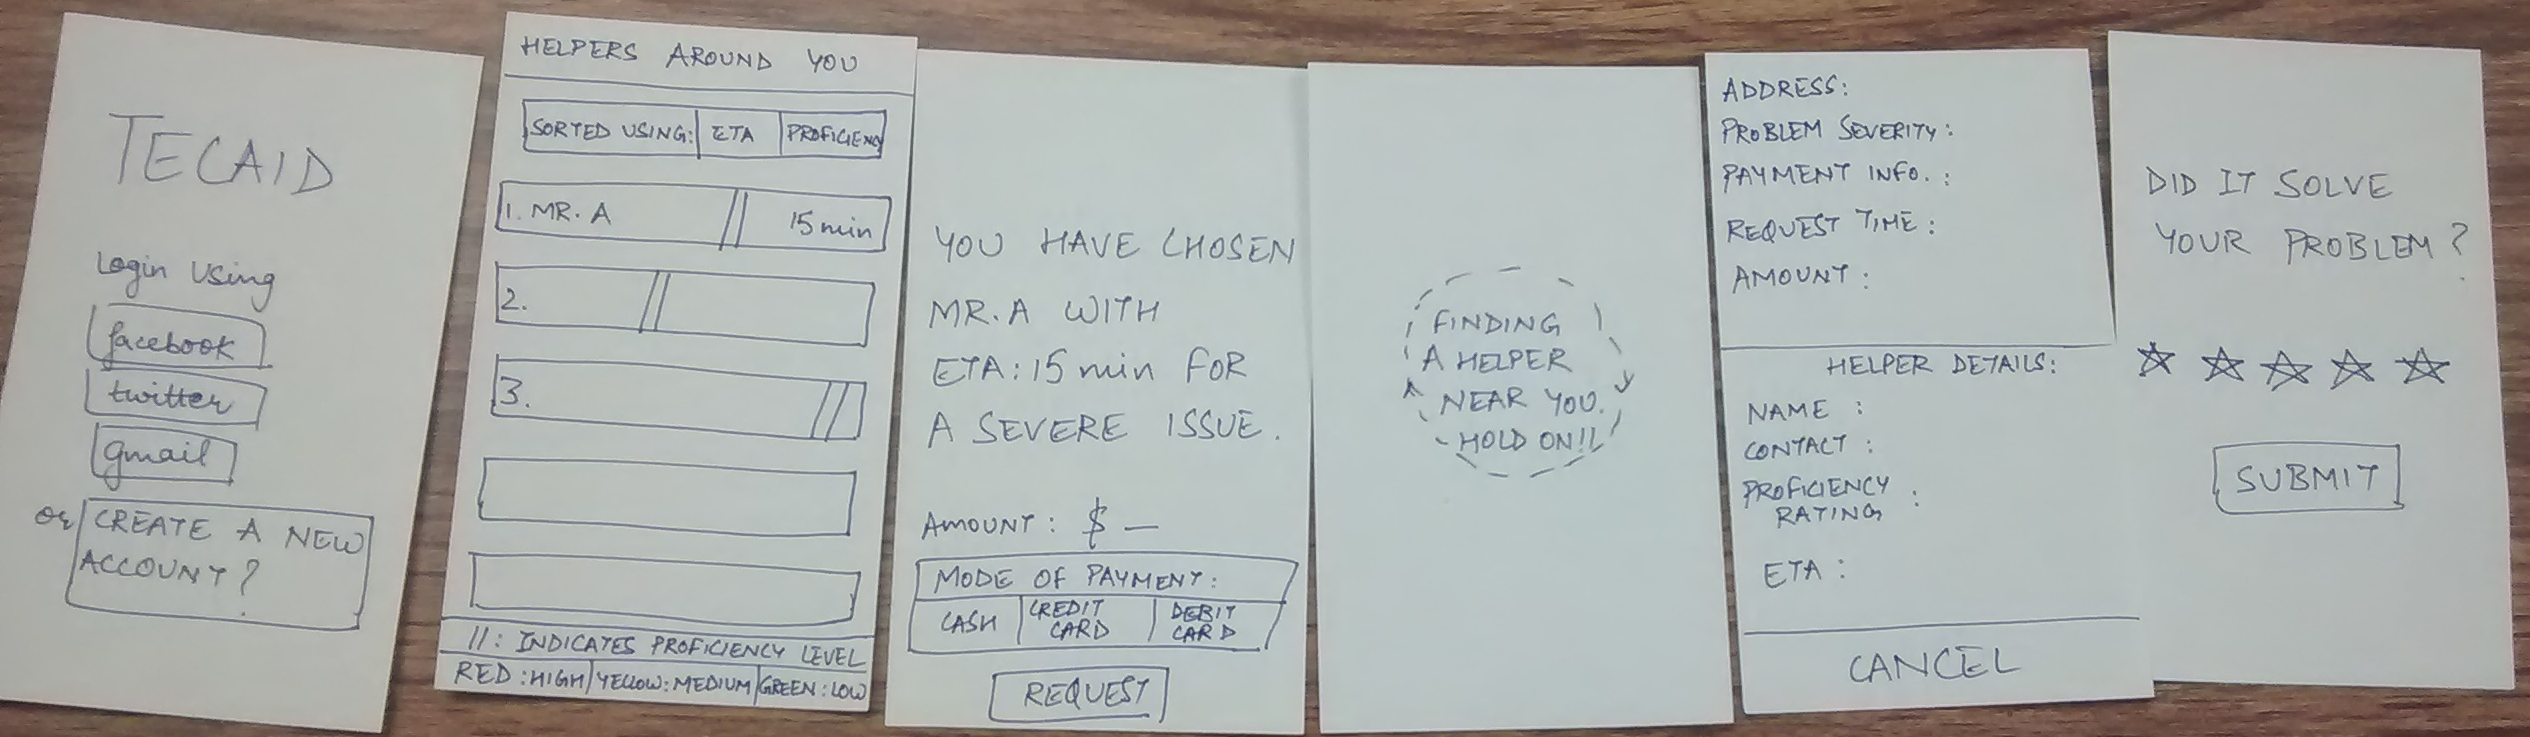 TECAID
Login using
facebook
twitter
gmail
or CREATE A NEW
ACCOUNT?
HELPERS AROUND YOU
SORTED USING: ETA PROFICIENCY
1. MR. A 15 min
2.
3.
//: INDICATES PROFICIENCY LEVEL
RED: HIGH YELLOW: MEDIUM GREEN: LOW
YOU HAVE CHOSEN
MR. A WITH
ETA: 15 min FOR
A SEVERE ISSUE.
AMOUNT: $ —
MODE OF PAYMENT:
CASH
CREDIT
CARD
DEBIT
CARD
REQUEST
FINDING
A HELPER
NEAR YOU.
HOLD ON!!
ADDRESS:
PROBLEM SEVERITY:
PAYMENT INFO.:
REQUEST TIME:
AMOUNT:
HELPER DETAILS:
NAME:
CONTACT:
PROFICIENCY
RATING:
ETA:
CANCEL
DID IT SOLVE
YOUR PROBLEM?
SUBMIT